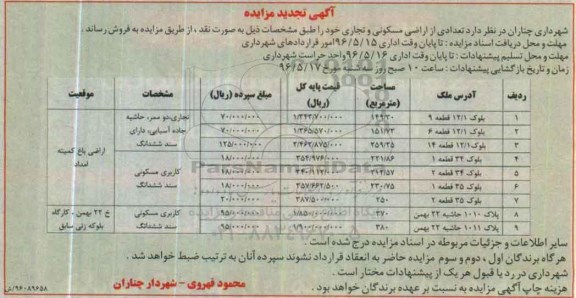 آگهی تجدید مزایده
شهرداری چناران در نظر دارد تعدادی از اراضی مسکونی و تجاری خود را طبق مشخصات ذیل به صورت نقد ، از طریق مزایده به فروش رساند .
مهلت و محل دریافت اسناد مزایده : تا پایان وقت اداری ۹۶/۵/۱۵ امور قراردادهای شهرداری
مهلت و محل تسلیم پیشنهادات : تا پایان وقت اداری ۹۶/۵/۱۶ واحد حراست شهرداری
زمان و تاریخ بازگشایی پیشنهادات : ساعت ۱۰ صبح روز سه شنبه مورخ ۹۶/۵/۱۷
ردیف آدرس ملک مساحت (مترمربع) قیمت پایه کل (ریال) مبلغ سپرده (ریال) مشخصات موقعیت
۱ بلوک ۱۲/۱ قطعه ۹ ۱۴۹/۳۰ ۱/۳۴۳/۷۰۰/۰۰۰ ۷۰/۰۰۰/۰۰۰ تجاری،دو ممر، حاشیه
۲ بلوک ۱۲/۱ قطعه ۶ ۱۵۱/۷۳ ۱/۳۶۵/۵۷۰/۰۰۰ ۷۰/۰۰۰/۰۰۰ جاده آسیایی، دارای
۳ بلوک ۱۲/۱ قطعه ۱۴ ۲۵۹/۲۵ ۲/۴۶۲/۸۷۵/۰۰۰ ۱۲۵/۰۰۰/۰۰۰ سند ششدانگ
اراضی باغ کمیته امداد
۴ بلوک ۳۴ قطعه ۱ ۲۲۱/۸۶ ۳۵۴/۹۷۶/۰۰۰ ۱۸/۰۰۰/۰۰۰
۵ بلوک ۳۴ قطعه ۲ ۱۸/۰۰۰/۰۰۰ کاربری مسکونی
۶ بلوک ۳۵ قطعه ۱ ۲۳۰/۷۵ ۳۵۷/۶۶۲/۵۰۰ ۱۸/۰۰۰/۰۰۰ سند ششدانگ
۷ بلوک ۳۵ قطعه ۲ ۲۵۰ ۳۸۷/۵۰۰/۰۰۰ ۲۰/۰۰۰/۰۰۰
۸ پلاک ۱۰۱۱ حاشیه ۲۲ بهمن ۳۷۰ ۱/۸۵۰/۰۰۰/۰۰۰ ۹۵/۰۰۰/۰۰۰ کاربری مسکونی خ ۲۲ بهمن ، کارگاه
۹ پلاک ۱۰۱۱ حاشیه ۲۲ بهمن ۳۸۰ ۱/۹۰۰/۰۰۰/۰۰۰ ۹۵/۰۰۰/۰۰۰ سند ششدانگ بلوکه زنی سابق
سایر اطلاعات و جزئیات مربوطه در اسناد مزایده درج شده است .
هرگاه برندگان اول ، دوم و سوم مزایده حاضر به انعقاد قرارداد نشوند سپرده آنان به ترتیب ضبط خواهد شد .
شهرداری در رد یا قبول هر یک از پیشنهادات مختار است .
هزینه چاپ آگهی مزایده به نسبت بر عهده برندگان خواهد بود .
محمود قهروی - شهردار چناران
۹۶۰۸۹۶۵۸/ش